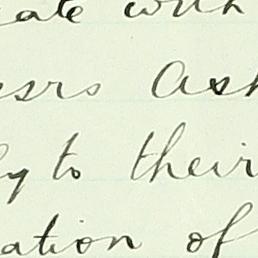 ate with
ssrs Ash
ly to their
ation of